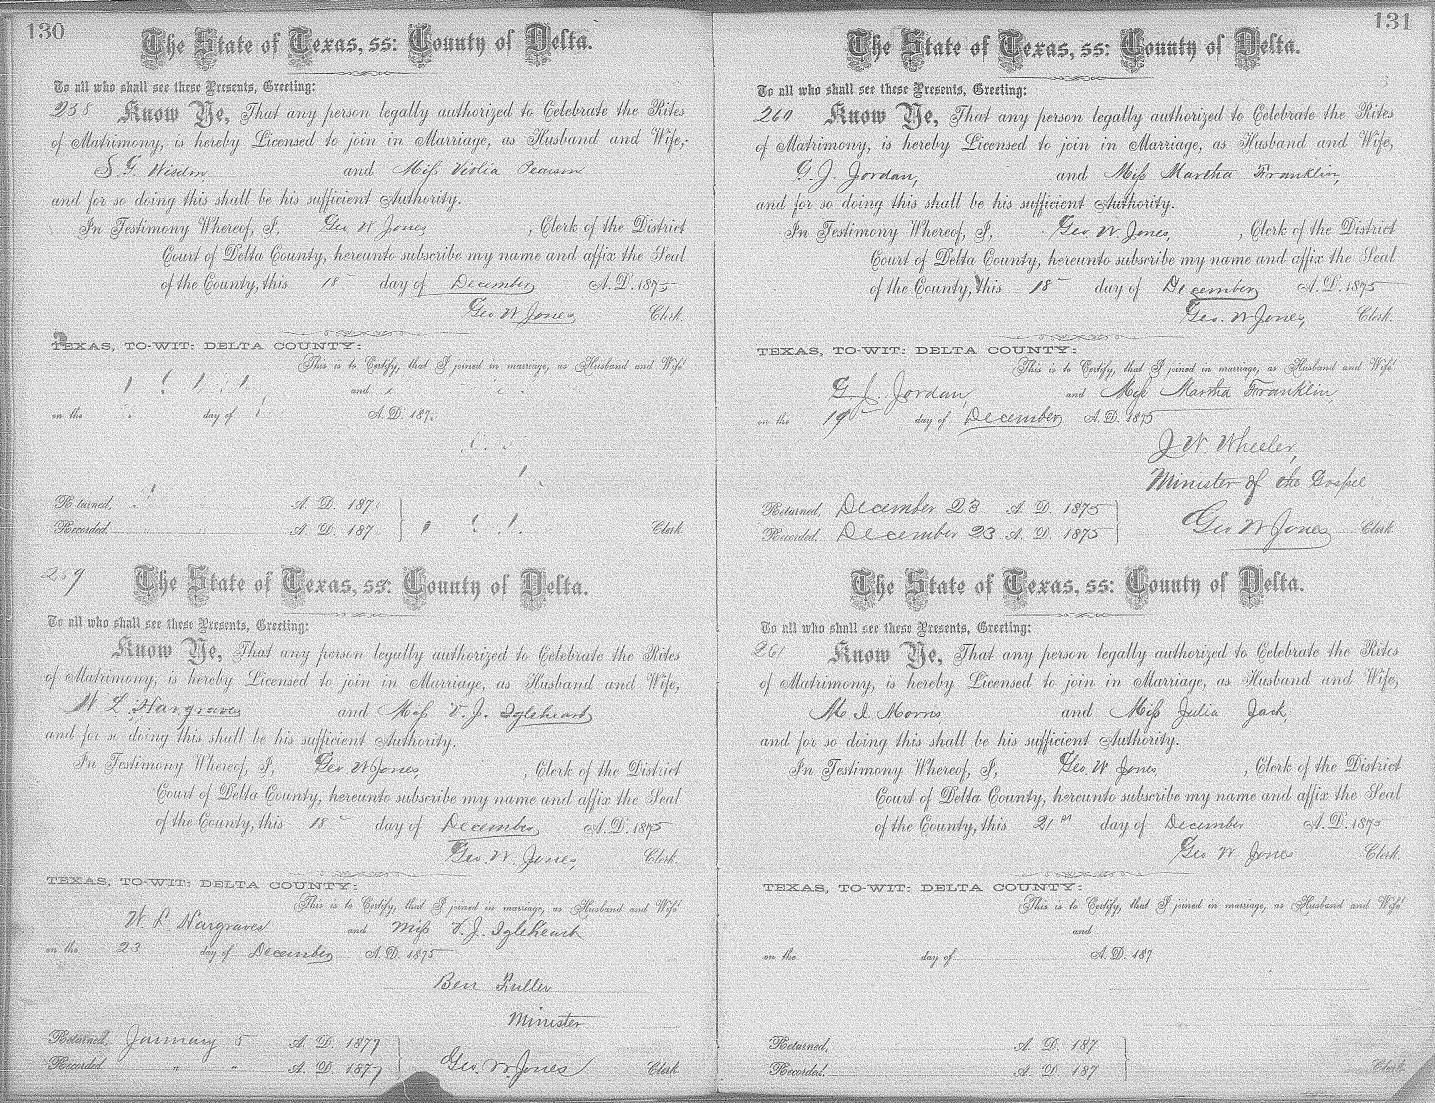 130
The State of Texas, ss: County of Delta.
To all who shall see these Presents, Greeting:
258 Know Ye, That any person legally authorized to Celebrate the Rites
of Matrimony, is hereby Licensed to join in Marriage, as Husband and Wife,
S. G. Wisdom and Miss Violia Pearson
and for so doing this shall be his sufficient Authority.
In Testimony Whereof, I, Geo W Jones, Clerk of the District
Court of Delta County, hereunto subscribe my name and affix the Seal
of the County, this 18 day of December A.D. 1875
Geo W Jones Clerk.
TEXAS, TO-WIT: DELTA COUNTY:
This is to Certify, that I joined in marriage, as Husband and Wife
and
on the day of A.D. 187
Returned, A. D. 187
Recorded. A. D. 187
Clerk
259 The State of Texas, ss: County of Delta.
To all who shall see these Presents, Greeting:
Know Ye, That any person legally authorized to Celebrate the Rites
of Matrimony, is hereby Licensed to join in Marriage, as Husband and Wife,
W L Hargraves and Miss V. J. Igleheart
and for so doing this shall be his sufficient Authority.
In Testimony Whereof, I, Geo. W Jones, Clerk of the District
Court of Delta County, hereunto subscribe my name and affix the Seal
of the County, this 18 day of December A.D. 1875
Geo. W. Jones, Clerk.
TEXAS, TO-WIT: DELTA COUNTY:
This is to Certify, that I joined in marriage, as Husband and Wife
W. L Hargraves and Miss V. J. Igleheart
on the 23 day of December A.D. 1875
Ben Fuller
Minister
Returned, January 5 A. D. 1877
Recorded " " A. D. 1877
Geo. W. Jones Clerk
131
The State of Texas, ss: County of Delta.
To all who shall see these Presents, Greeting:
260 Know Ye, That any person legally authorized to Celebrate the Rites
of Matrimony, is hereby Licensed to join in Marriage, as Husband and Wife,
G. J. Jordan, and Miss Martha Franklin,
and for so doing this shall be his sufficient Authority.
In Testimony Whereof, I, Geo W. Jones, Clerk of the District
Court of Delta County, hereunto subscribe my name and affix the Seal
of the County, this 18 day of December A.D. 1875
Geo. W Jones, Clerk.
TEXAS, TO-WIT: DELTA COUNTY:
This is to Certify, that I joined in marriage, as Husband and Wife
G J. Jordan, and Miss Martha Franklin,
on the 19 day of December A.D. 1875
J W. Wheeler,
Minister of the Gospel
Returned, December 23 A. D. 1875
Recorded, December 23 A. D. 1875
Geo W Jones Clerk
The State of Texas, ss: County of Delta.
To all who shall see these Presents, Greeting:
261 Know Ye, That any person legally authorized to Celebrate the Rites
of Matrimony, is hereby Licensed to join in Marriage, as Husband and Wife,
M. I. Morris and Miss Julia Jack,
and for so doing this shall be his sufficient Authority.
In Testimony Whereof, I, Geo. W Jones, Clerk of the District
Court of Delta County, hereunto subscribe my name and affix the Seal
of the County, this 21st day of December A.D. 1875
Geo W Jones Clerk.
TEXAS, TO-WIT: DELTA COUNTY:
This is to Certify, that I joined in marriage, as Husband and Wife
and
on the day of A.D. 187
Returned, A. D. 187
Recorded. A. D. 187
Clerk